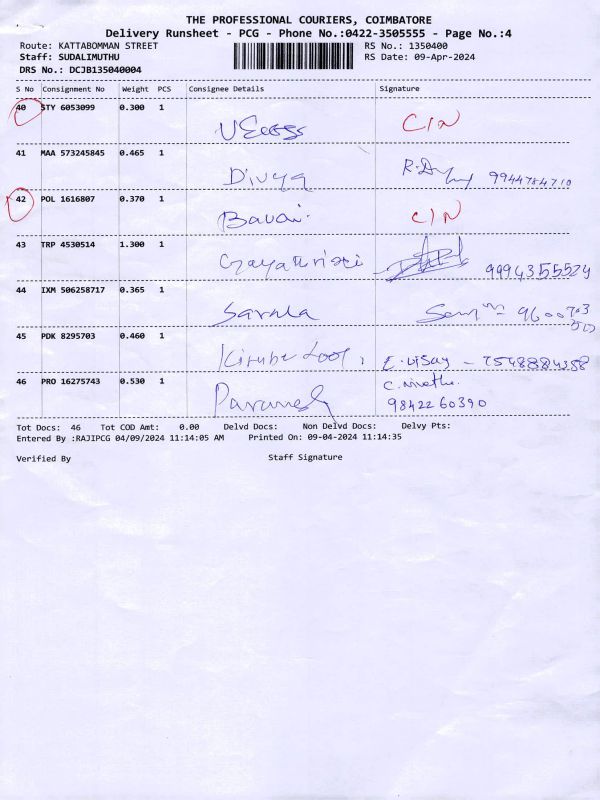 THE PROFESSIONAL COURIERS, COIMBATORE
Delivery Runsheet - PCG - Phone No.:0422-3505555 - Page No.:4
Route: KATTABOMMAN STREET RS No.: 1350400
Staff: SUDALIMUTHU RS Date: 09-Apr-2024
DRS No.: DCJB135040004
S No Consignment No Weight PCS Consignee Details Signature
40 STY 6053099 0.300 1
C/N
41 MAA 573245845 0.465 1
Divya 9944784710
42 POL 1616807 0.370 1
Bavai. C/N
43 TRP 4530514 1.300 1
Gayathri 9994355524
44 IXM 506258717 0.365 1
Sarala
45 PDK 8295703 0.460 1
E. Vijay - 7548884388
46 PRO 16275743 0.530 1
Paramesh
9842260390
Tot Docs: 46 Tot COD Amt: 0.00 Delvd Docs: Non Delvd Docs: Delvy Pts:
Entered By :RAJIPCG 04/09/2024 11:14:05 AM Printed On: 09-04-2024 11:14:35
Verified By Staff Signature